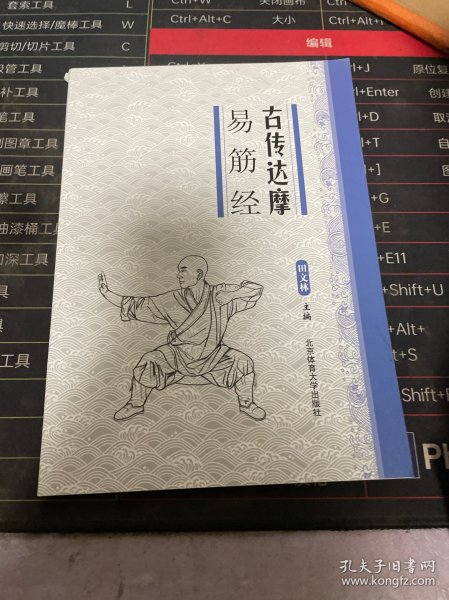 套索工具 L
快速选择/魔棒工具 W
剪切/切片工具 C
吸管工具
补工具
笔工具
图章工具
画笔工具
擦工具
油漆桶工具
加深工具
工具
工具
工具
Ctrl+W 关闭画布 Ctrl+
Ctrl+Alt+C 大小 Ctrl+Alt+
编辑
+J 原位复
+Enter 创建
+D 取消
+T 自
+]
+G
+E11
+Shift+U
+Alt+
t+S
Shift+
古传达摩
易筋经
田文林
主编
北京体育大学出版社
孔夫子旧书网
www.kongfz.com